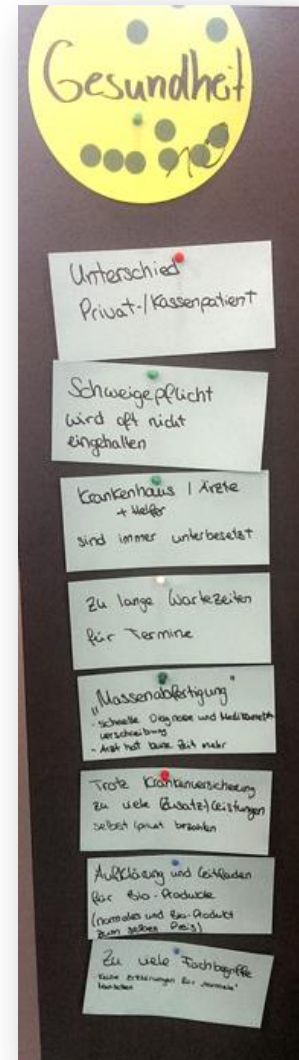 Gesundheit
10
Unterschied
Privat-/Kassenpatient
Schweigepflicht
wird oft nicht
eingehalten
Krankenhaus / Ärzte
+ Helfer
sind immer unterbesetzt
Zu lange Wartezeiten
für Termine
„Massenabfertigung"
- schnelle Diagnose und Medikamenten
verschreibung
- Arzt hat keine Zeit mehr
Trotz Krankenversicherung
zu viele (Zusatz-)Leistungen
selbst (privat bezahlen
Aufklärung und Leitfaden
für Bio-Produkte
(normales und Bio-Produkt
zum selben Preis)
Zu viele Fachbegriffe
Keine Erklärungen für „normale"
Menschen